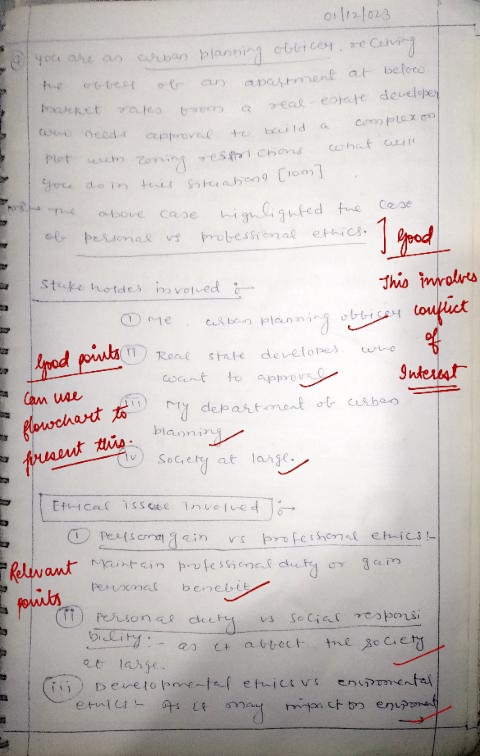 01/12/023
Q You are an urban planning obbicer. receiving
the obbest ob an apartment at below
market rates from a real-estate developer
who needs approval to build a complex on
plot with zoning restrictions what will
you do in this situation? [10m]
The above case highlighted the case
ob personal vs professional ethics.
Good
This involves
conflict
of
Interest
Stakeholdes involved :-
(i) Me. urban planning obbicer
(ii) Real state developes. who
want to approval
(iii) My department ob urban
planning
(iv) Society at large.
Good points
Can use
flowchart to
present this.
Ethical issue involved :-
(i) Personal gain vs professional ethics:-
Maintain professional duty or gain
personal benebit
Relevant
points
(ii) Personal duty vs social responsi
bility:- as it abbect the society
at large.
(iii) Developmental ethics vs enviromental
ethics:- As it may impact on enviroment